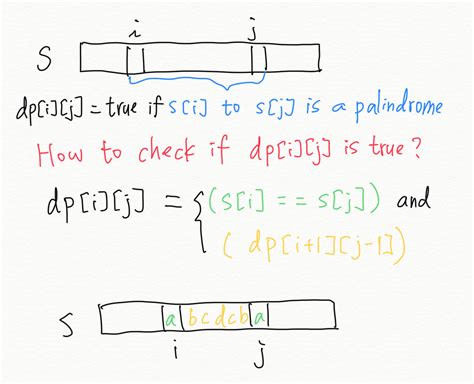 i j
S
dp[i][j] = true if S[i] to S[j] is a palindrome
How to check if dp[i][j] is true?
dp[i][j] = { (S[i] == S[j]) and
( dp[i+1][j-1])
S a b c d c b a
i j